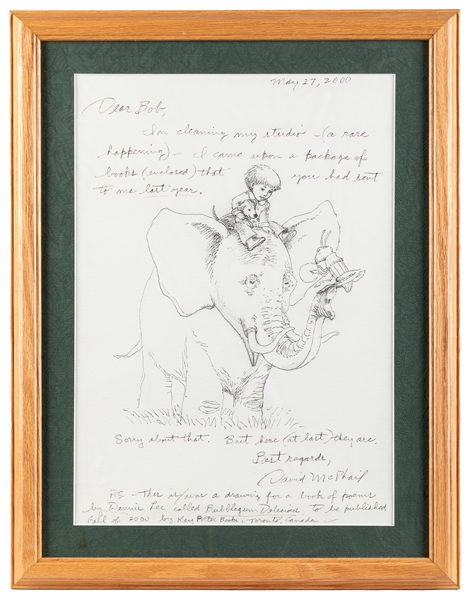 May 27, 2000
Dear Bob,
In cleaning my studio - (a rare
happening) - I came upon a package of
books (enclosed) that you had sent
to me last year.
Sorry about that. But here (at last) they are.
Best regards,
David McPhail
P.S - This is/was a drawing for a book of poems
by Dennis Lee called Bubblegum Delicious to be published
Fall of 2000 by Key Porter Books, Toronto, Canada -